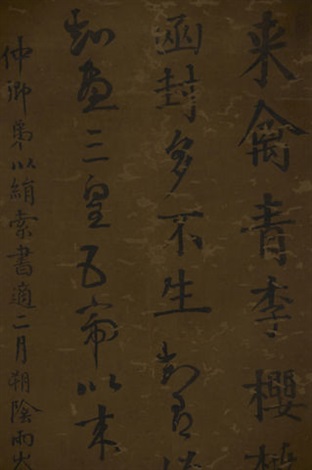 来禽青李櫻桃
函封多不生足下所
知畫三皇五帝以来
仲卿為以絹索書適二月朔陰雨